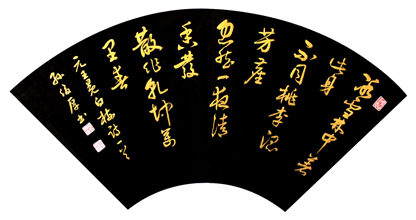 冰雪林中著
此身
不同桃李混
芳塵
忽然一夜清
香發
散作乾坤萬
里春
元王冕白梅詩一首